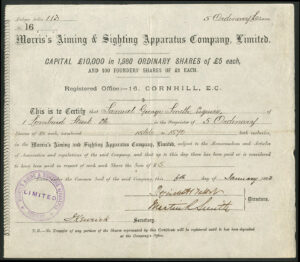 113
5 Ordinary
No
16
Morris's Aiming & Sighting Apparatus Company, Limited.
CAPITAL £10,000 in 1,980 ORDINARY SHARES of £5 each,
AND 100 FOUNDERS' SHARES OF £1 EACH.
Registered Office:—16, CORNHILL, E.C.
This is to Certify that Samuel George Smith Esquire
of 1 Lombard Street is the Proprietor of 5 Ordinary
Shares of £5 each, numbered 1586 to 1590 both inclusive,
in the Morris's Aiming and Sighting Apparatus Company, Limited, subject to the Memorandum and Articles
of Association and regulations of the said Company, and that up to this day there has been paid in respect
of each of such Shares the sum of £5
Common Seal of the said Company, this 6th day of January
LIMITED
Martin R Smith
Directors.
Secretary.
N.B.—No Transfer of any portion of the Shares represented by this Certificate will be registered until it has been deposited
at the Company's Office.